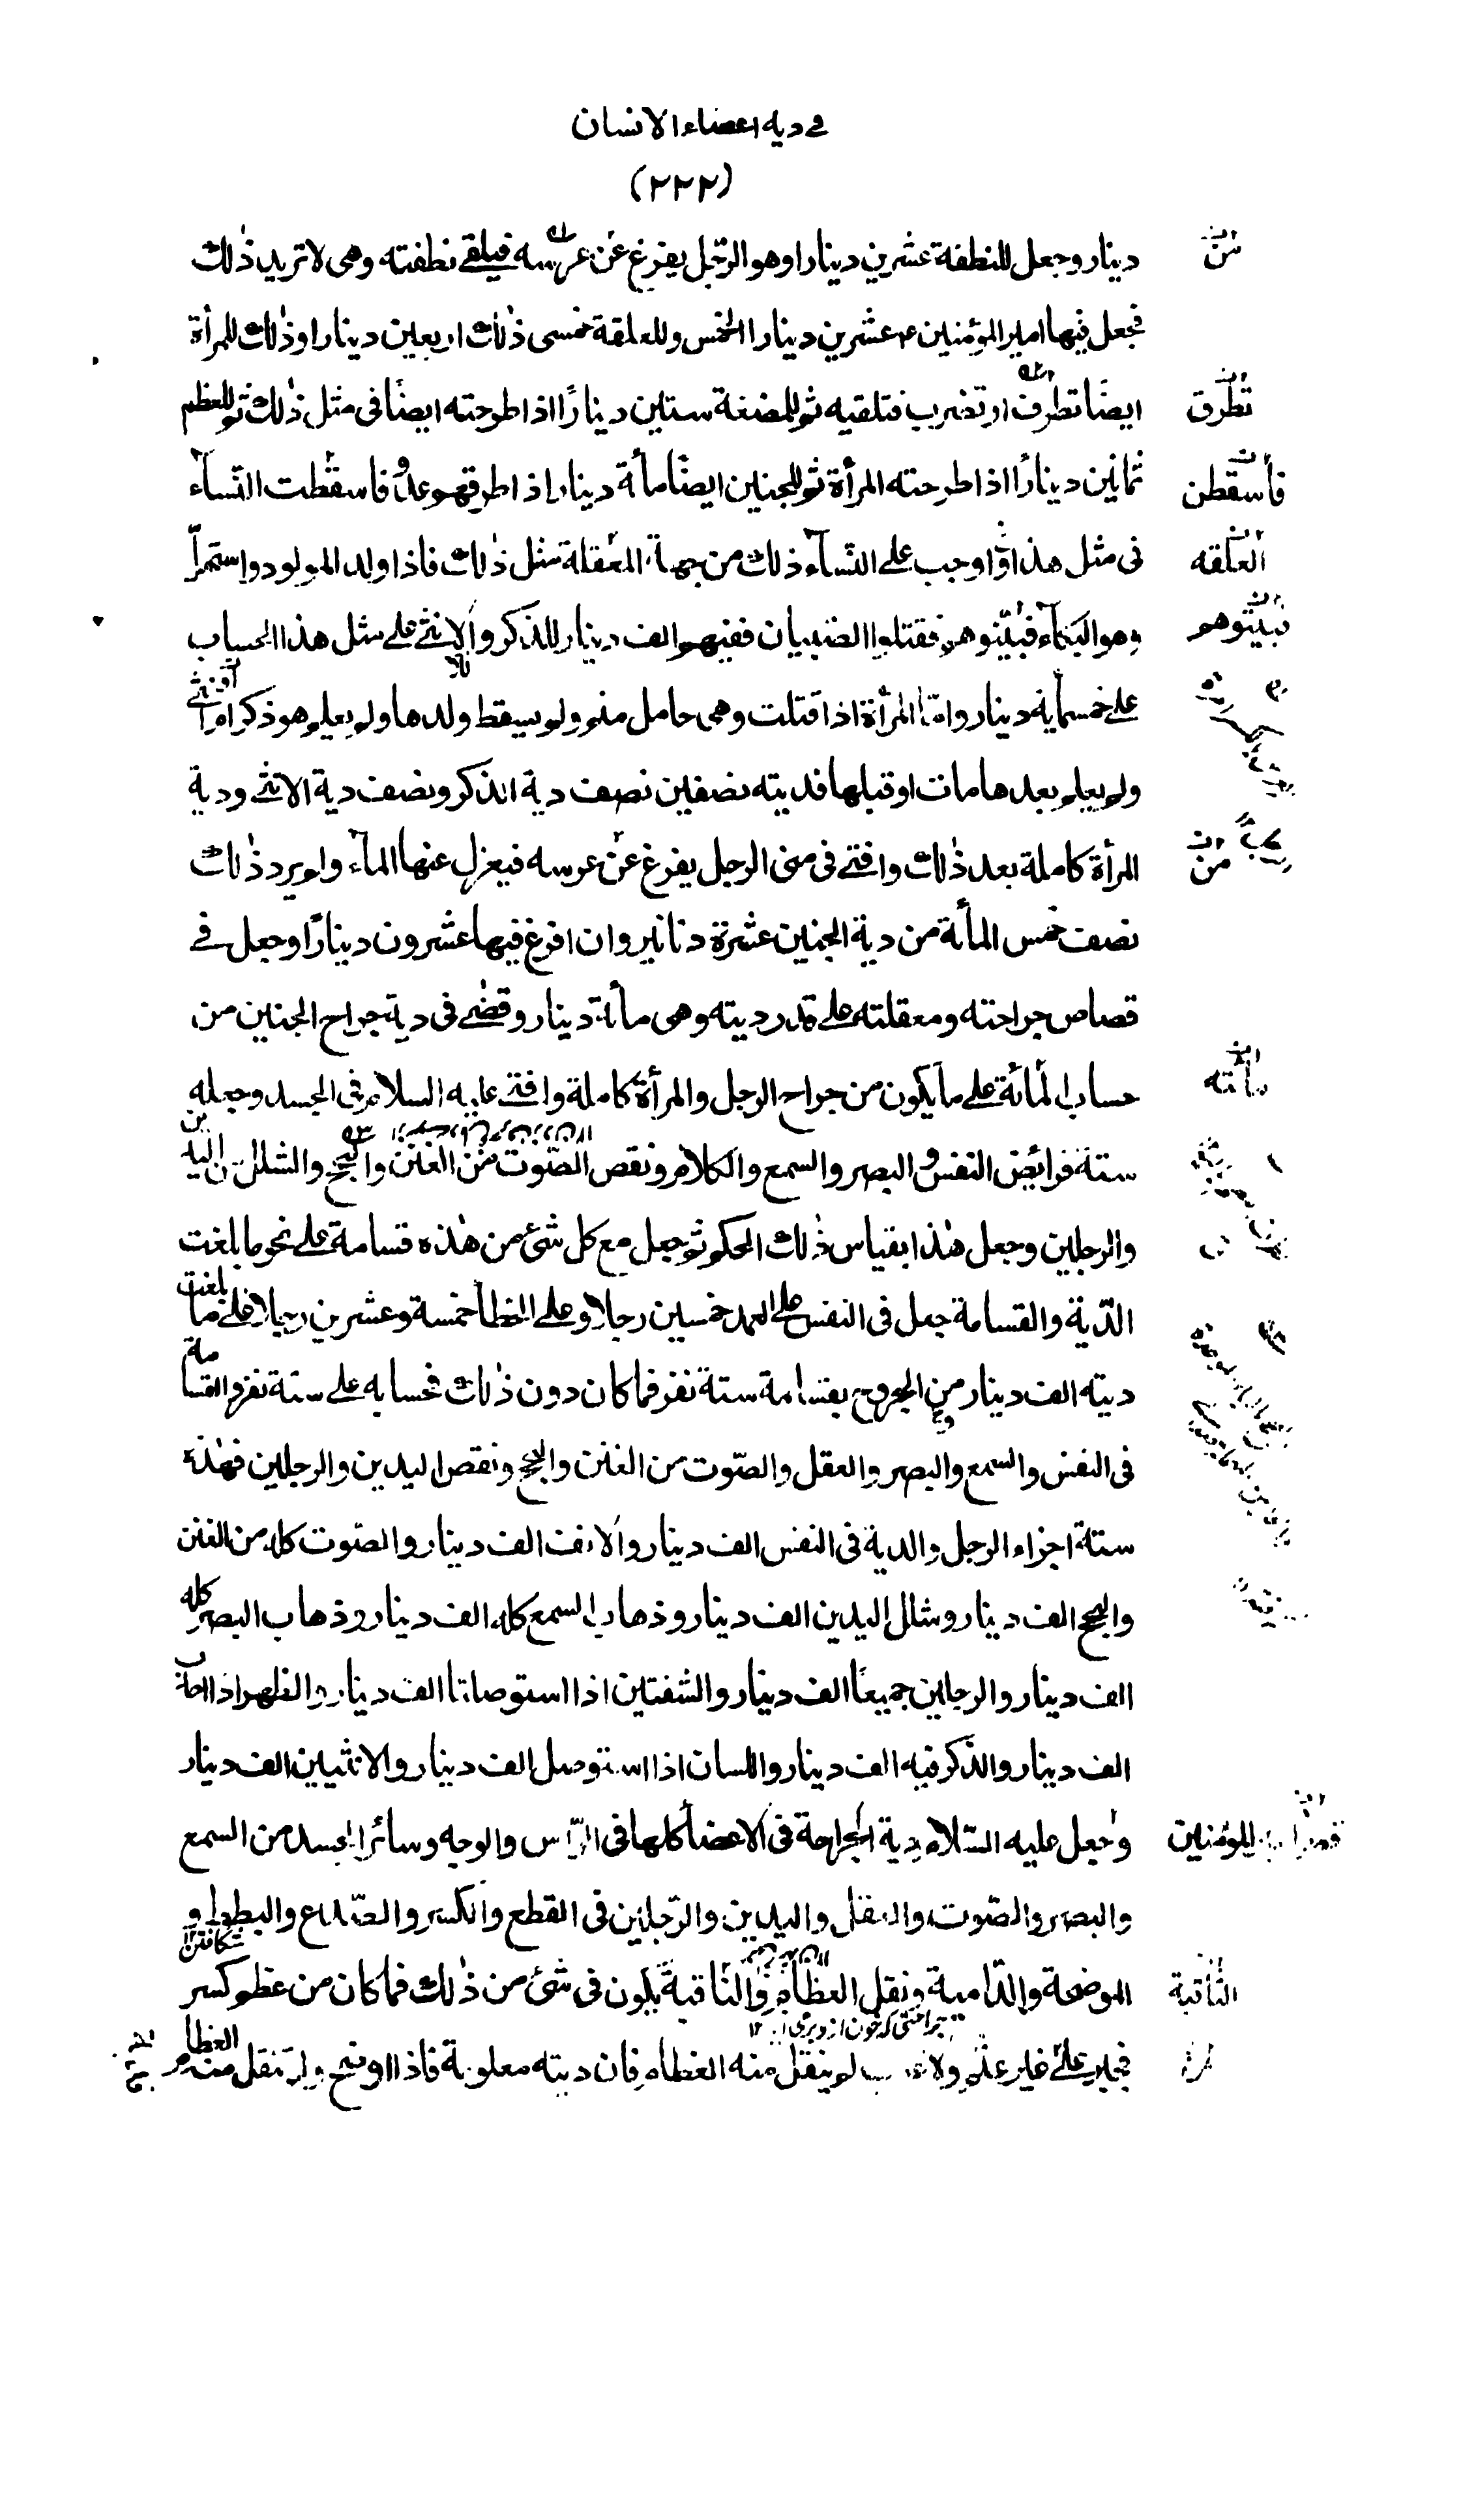 في دية اعضاء الانسان
(٢٢٢)
دينار وجعل للنطفة عشرين دينارا وهو الرّجل يفزع عن عرسه فيلقى نطفته وهى لا تريد ذٰلك
فجعل فيها امير المؤمنين ع عشرين دينارا الخمس وللعلقة خمسى ذٰلك اربعين دينارا وذٰلك للمرأة
ايضًا تطرق او تضرب فتلقيه ثم للمضغة ستين دينارًا اذا طرحته ايضًا فى مثل ذٰلك ثم للعظم
ثمانين دينارًا اذا طرحته المرأة ثم للجنين ايضًا مأة دينار اذا طرقهم عدو فاسقطت النّساء
فى مثل هذا اوجب على النّسآء ذلك من جهة المعقلة مثل ذٰلك فاذا ولد المولود واستهلّ
وهو البكاء فبيّتوهم فقتلوا الصّبيان ففيهم الف دينار للذكر والانثى على مثل هذا الحساب
على خمسمایة دينار وامّا المرأة اذا قتلت وهى حامل متم ولم يسقط ولدها ولم يعلم هو ذكر ام انثى
ولم يعلم بعدها مات او قبلها فديته نصفين نصف دية الذكر ونصف دية الانثى ودية
المرأة كاملة بعد ذٰلك وافتى فى منى الرجل يفزع عن عرسه فيعزل عنها المآء ولم يرد ذٰلك
نصف خمس المأة من دية الجنين عشرة دنانير وان افرغ فيها عشرون دينارًا وجعل فى
قصاص جراحته ومعقلته على قدر ديته وهى مأة دينار وقضٰى فى دية جراح الجنين من
حساب المأئة على ما يكون من جراح الرجل والمرأة كاملة وافتى عليه السلام فى الجسد وجعله
ستة فرائض النفس والبصر والسمع والكلام ونقص الصّوت من الغنن والبحح والشلل من اليدين
والرجلين وجعل هٰذا بقياس ذٰلك الحكم ثم جعل مع كل شئ من هٰذه قسامة على نحو ما بلغت
الدّية والقسامة جعل فى النفس على العمد خمسين رجلا وعلى الخطأ خمسة وعشرين رجلا على ما بلغت
ديته الف دينار من الجروح بقسامة ستة نفر فما كان دون ذٰلك فحسابه على ستة نفر والقسامة
فى النفس والسمع والبصر والعقل والصّوت من الغنن والبحح ونقص اليدين والرجلين فهٰذه
ستة اجزاء الرجل والدية فى النفس الف دينار والانف الف دينار والصّوت كله من الغنن
والبحح الف دينار وشلل اليدين الف دينار وذهاب السمع كله الف دينار وذهاب البصر كله
الف دينار والرجلين جميعًا الف دينار والشفتين اذا استوصلتا الف دينار والظهر اذا احدب
الف دينار والذّكر فيه الف دينار واللسان اذا استوصل الف دينار والانثيين الف دينار
وجعل عليه السّلام دية الجراحة فى الاعضاء كلها فى الرّأس والوجه وسائر الجسد من السمع
والبصر والصّوت والعقل واليدين والرّجلين فى القطع والكسر والصّدع والبط و
الموضحة والدّامية ونقل العظام والنّاقبة يكون فى شئ من ذٰلك فما كان من عظم كسر
فجبر على غير عثم ولا عيب لم ينقل منه العظام فان ديته معلومة فاذا اوضح ولم تنقل منه العظام
من
تطرق
فأسقطن
العلقه
فبيّتوهم
من
مأته
المؤمنين
الثاقبة